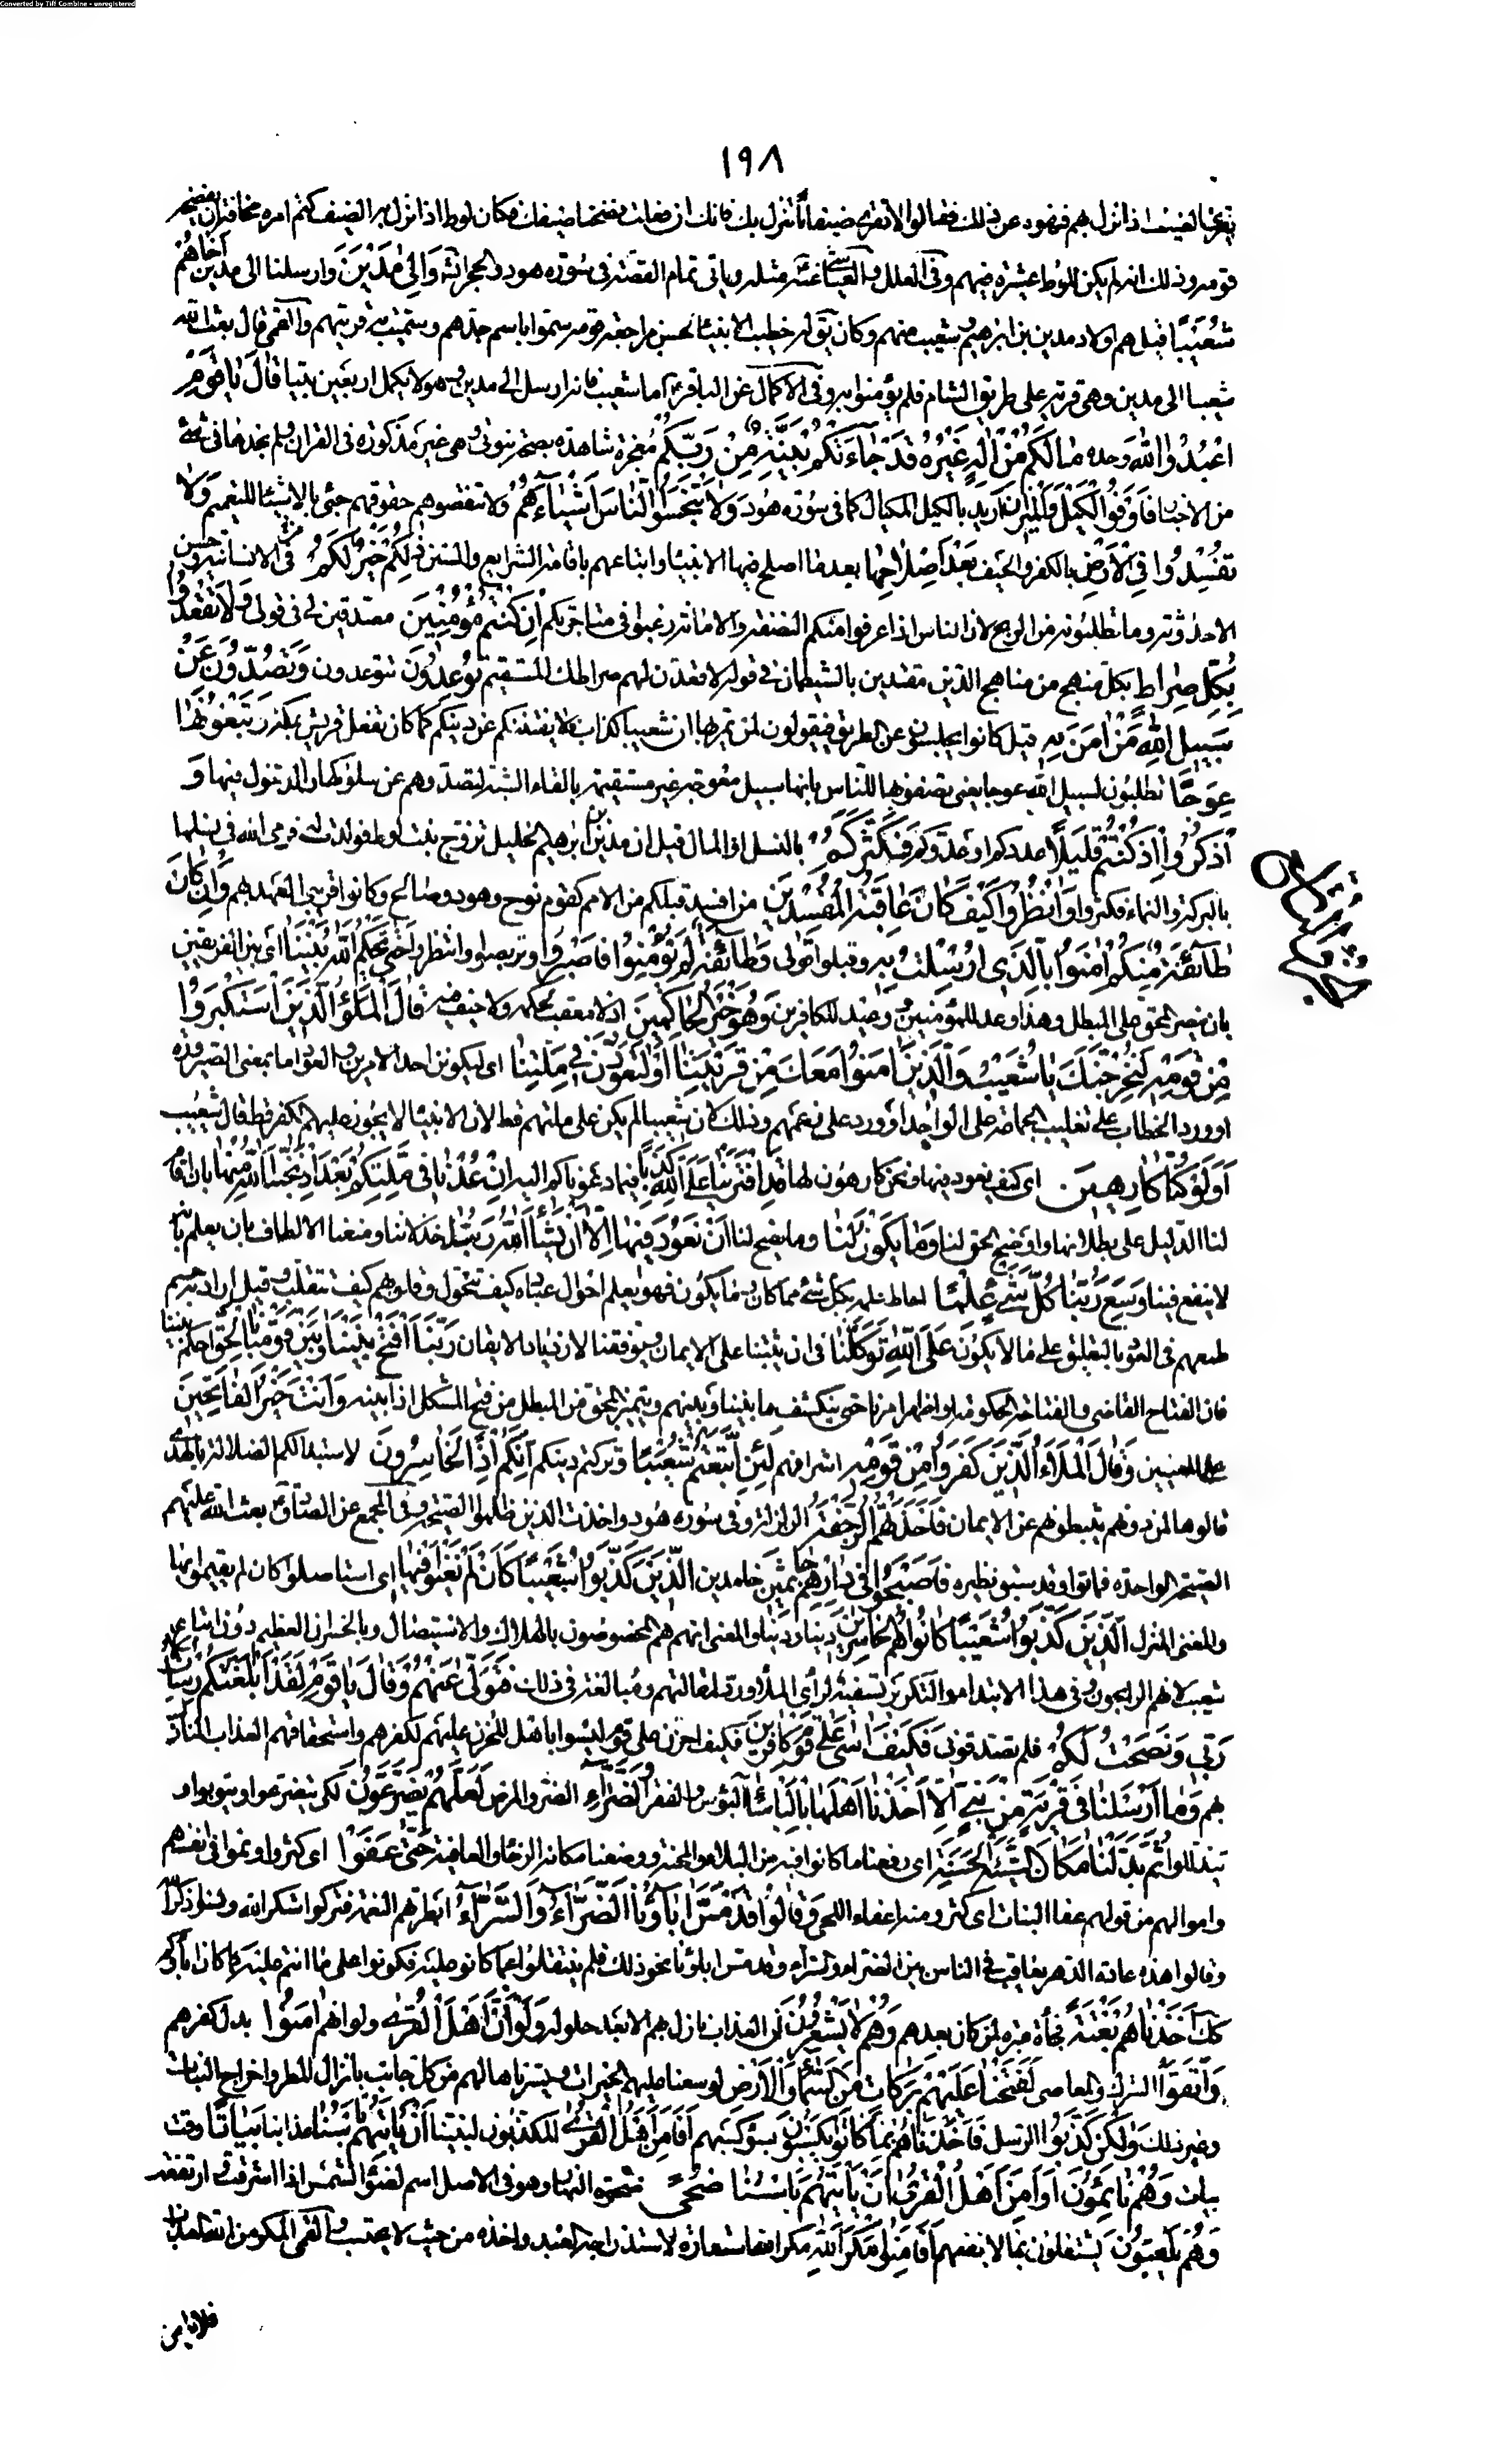 Converted by Tiff Combine - unregistered
١٩٨
الضيف اذا نزل بهم فنهوه عن ذلك فقالوا لا تقرى ضيفا ينزل بك فانك ان فعلت فضحنا ضيفك فكان لوط اذا نزل به الضيف كتم امره مخافة ان يفضحه
قومه وذلك انه لم يكن للوط عشيرة فيهم وفى العلل والعياشى عنه مثله وياتى تمام القصة فى سورة هود والحجر انشاء الله وَاِلى مَدْيَنَ وارسلنا الى مدين اَخاهُمْ
شُعَيْبًا قيل هم اولاد مدين بن ابرهيم وشعيب منهم وكان يقال له خطيب الانبياء لحسن مراجعته قومه سموا باسم جدهم وسميت به قريتهم والقمى قال بعث الله
شعيبا الى مدين وهى قرية على طريق الشام فلم يؤمنوا به وفى الاكمال عن الباقر اما شعيب فانه ارسل الى مدين وهى لا يكمل اربعين بيتا قالَ يا قَوْمِ
اعْبُدُوا اللهَ وحده ما لَكُمْ مِنْ اِلهٍ غَيْرُهُ قَدْ جاءَتْكُمْ بَيِّنَةٌ مِنْ رَبِّكُمْ معجزة شاهدة بصحة نبوتى وهى غير مذكورة فى القران ولم نجدها فى شئ
من الاخبار فَاَوْفُوا الْكَيْلَ وَالْميزانَ اريد بالكيل المكيال كما فى سورة هود وَلا تَبْخَسُوا النّاسَ اَشْياءَهُمْ ولا تنقصوهم حقوقهم جئ بالاشياء للتعميم وَلا
تُفْسِدُوا فِى الْاَرْضِ بالكفر والحيف بَعْدَ اِصْلاحِها بعدما اصلح فيها الانبياء واتباعهم باقامة الشرايع والسنن ذلِكُمْ خَيْرٌ لَكُمْ فى الانسانية وحسن
الاحدوثة وما تطلبونه من الربح لان الناس اذا عرفوا منكم النصفة والامانة رغبوا فى متاجرتكم اِنْ كُنْتُمْ مُؤْمِنينَ مصدقين لى فى قولى وَلا تَقْعُدُوا
بِكُلِّ صِراطٍ بكل منهج من مناهج الدين مقتدين بالشيطان فى قوله لاقعدن لهم صراطك المستقيم تُوعِدُونَ تتوعدون وَتَصُدُّونَ عَنْ
سَبيلِ اللهِ مَنْ امَنَ بِهِ قيل كانوا يجلسون على الطريق فيقولون لمن يمر بها ان شعيبا كذاب فلا يفتننكم عن دينكم كما كان تفعل قريش بمكة وَتَبْغُونَها
عِوَجًا تطلبون لسبيل الله عوجا يعنى تصفونها للناس بانها سبيل معوجة غير مستقيمة بالقاء الشبه لتصدوهم عن سلوكها والدخول فيها وَ
اذْكُرُوا اِذْ كُنْتُمْ قَليلًا عددكم او عدتكم فَكَثَّرَكُمْ بالنسل او المال قيل ان مدين بن ابرهيم الخليل تزوج بنت لوط فولدت له فرمى الله فى نسلها
بالبركة والنماء فكثروا وَانْظُرُوا كَيْفَ كانَ عاقِبَةُ الْمُفْسِدينَ من افسد قبلكم من الامم كقوم نوح وهود وصالح وكانوا قريبى العهد بهم وَاِنْ كانَ
طائِفَةٌ مِنْكُمْ امَنُوا بِالَّذى اُرْسِلْتُ بِهِ وقبلوا قولى وَطائِفَةٌ لَمْ يُؤْمِنُوا فَاصْبِرُوا وتربصوا وانتظروا حَتّى يَحْكُمَ اللهُ بَيْنَنا اى بين الفريقين
بان ينصر المحق على المبطل وهذا وعد للمؤمنين ووعيد للكافرين وَهُوَ خَيْرُ الْحاكِمينَ اذ لا معقب لحكمه ولا حيف فيه قالَ الْمَلَؤُ الَّذينَ اسْتَكْبَرُوا
مِنْ قَوْمِهِ لَنُخْرِجَنَّكَ يا شُعَيْبُ وَالَّذينَ امَنُوا مَعَكَ مِنْ قَرْيَتِنا اَوْ لَتَعُودُنَّ فى مِلَّتِنا اى ليكونن احد الامرين والعود اما بمعنى الصيرورة
او ورد الخطاب على تغليب الجماعة على الواحد او ورد على زعمهم وذلك لان شعيبا لم يكن على ملتهم قط لان الانبياء لا يجوز عليهم الكفر قط قال شعيب
اَوَلَوْ كُنّا كارِهينَ اى كيف نعود فيها ونحن كارهون لها قَدِ افْتَرَيْنا عَلَى اللهِ كَذِبًا فيما دعوناكم اليه اِنْ عُدْنا فى مِلَّتِكُمْ بَعْدَ اِذْ نَجّانَا اللهُ مِنْها بان اقام
لنا الدليل على بطلانها واوضح الحق لنا وَما يَكُونُ لَنا وما يصح لنا اَنْ نَعُودَ فيها اِلّا اَنْ يَشاءَ اللهُ رَبُّنا خذلاننا ومنعنا الالطاف بان يعلم بانه
لا ينفع فينا وَسِعَ رَبُّنا كُلَّ شَئٍ عِلْمًا احاط علمه بكل شئ مما كان وما يكون فهو يعلم احوال عباده كيف تتحول وقلوبهم كيف تتقلب وقيل اراد به حسم
طمعهم فى العود بالتعليق على ما لا يكون عَلَى اللهِ تَوَكَّلْنا فى ان يثبتنا على الايمان ويوفقنا لازدياد الايقان رَبَّنَا افْتَحْ بَيْنَنا وَبَيْنَ قَوْمِنا بِالْحَقِّ احكم بيننا
فان الفتاح القاضى والفتاحة الحكومة او اظهر امرنا حتى ينكشف ما بيننا وبينهم ويتميز المحق من المبطل من فتح المشكل اذا بينه وَاَنْتَ خَيْرُ الْفاتِحينَ
على المعنيين وَقالَ الْمَلَاُ الَّذينَ كَفَرُوا مِنْ قَوْمِهِ اشرافهم لَئِنِ اتَّبَعْتُمْ شُعَيْبًا وتركتم دينكم اِنَّكُمْ اِذًا لَخاسِرُونَ لاستبدالكم الضلالة بالهدى
قالوها لمن دونهم يثبطونهم عن الايمان فَاَخَذَتْهُمُ الرَّجْفَةُ الزلزلة وفى سورة هود واخذت الذين ظلموا الصيحة وفى المجمع عن الصادق بعث الله عليهم
الصيحة الواحدة فماتوا وقد سبق نظيره فَاَصْبَحُوا فى دارِهِمْ جاثِمينَ خامدين الَّذينَ كَذَّبُوا شُعَيْبًا كَاَنْ لَمْ يَغْنَوْا فيها اى استاصلوا كان لم يقيموا بها
والمغنى المنزل الَّذينَ كَذَّبُوا شُعَيْبًا كانُوا هُمُ الْخاسِرينَ دينا ودنيا والمعنى انهم هم المخصوصون بالهلاك والاستيصال وبالخسران العظيم دون اتباع
شعيب لانهم الرابحون وفى هذا الابتداء والتكرير تسفيه لرأى الملا ورد لمقالتهم ومبالغة فى ذلك فَتَوَلّى عَنْهُمْ وَقالَ يا قَوْمِ لَقَدْ اَبْلَغْتُكُمْ رِسالاتِ
رَبّى وَنَصَحْتُ لَكُمْ فلم تصدقونى فَكَيْفَ اسى عَلى قَوْمٍ كافِرينَ فكيف احزن على قوم ليسوا باهل للحزن عليهم لكفرهم واستحقاقهم العذاب النازل
بهم وَما اَرْسَلْنا فى قَرْيَةٍ مِنْ نَبِىٍّ اِلّا اَخَذْنا اَهْلَها بِالْبَأْساءِ البؤس والفقر وَالضَّرّاءِ الضر والمرض لَعَلَّهُمْ يَضَّرَّعُونَ لكى يتضرعوا ويتوبوا و
يتذللوا ثُمَّ بَدَّلْنا مَكانَ السَّيِّئَةِ الْحَسَنَةَ اى رفعنا ما كانوا فيه من البلاء والمحنة ووضعنا مكانه الرخاء والعافية حَتّى عَفَوْا اى كثروا ونموا فى انفسهم
واموالهم من قولهم عفا النبات اى كثر ومنه اعفاء اللحى وَقالُوا قَدْ مَسَّ اباءَنَا الضَّرّاءُ وَالسَّرّاءُ ابطرتهم النعمة فتركوا شكر الله ونسوا ذكر الله
وقالوا هذه عادة الدهر يعاقب فى الناس بين الضراء والسراء وقد مس اباءنا نحو ذلك فلم ينتقلوا عما كانوا عليه فكونوا على ما انتم عليه كما كان اباؤكم
كذلك فَاَخَذْناهُمْ بَغْتَةً فجأة عبرة لمن كان بعدهم وَهُمْ لا يَشْعُرُونَ ان العذاب نازل بهم الا بعد حلوله وَلَوْ اَنَّ اَهْلَ الْقُرى ولو انهم امَنُوا بدل كفرهم
وَاتَّقَوْا الشرك والمعاصى لَفَتَحْنا عَلَيْهِمْ بَرَكاتٍ مِنَ السَّماءِ وَالْاَرْضِ لوسعنا عليهم الخيرات ويسرناها لهم من كل جانب بانزال المطر واخراج النبات
وغير ذلك وَلكِنْ كَذَّبُوا الرسل فَاَخَذْناهُمْ بِما كانُوا يَكْسِبُونَ بسوء كسبهم اَفَاَمِنَ اَهْلُ الْقُرى المكذبون لنبينا اَنْ يَأْتِيَهُمْ بَأْسُنا عذابنا بَياتًا وقت
بيات وَهُمْ نائِمُونَ اَوَاَمِنَ اَهْلُ الْقُرى اَنْ يَأْتِيَهُمْ بَأْسُنا ضُحًى ضحوة النهار وهو فى الاصل اسم لضوء الشمس اذا اشرقت وارتفعت
وَهُمْ يَلْعَبُونَ يشتغلون بما لا ينفعهم اَفَاَمِنُوا مَكْرَ اللهِ مكر الله استعارة لاستدراجه العبد واخذه من حيث لا يحتسب والقمى المكر من الله العذاب
فلا يامن